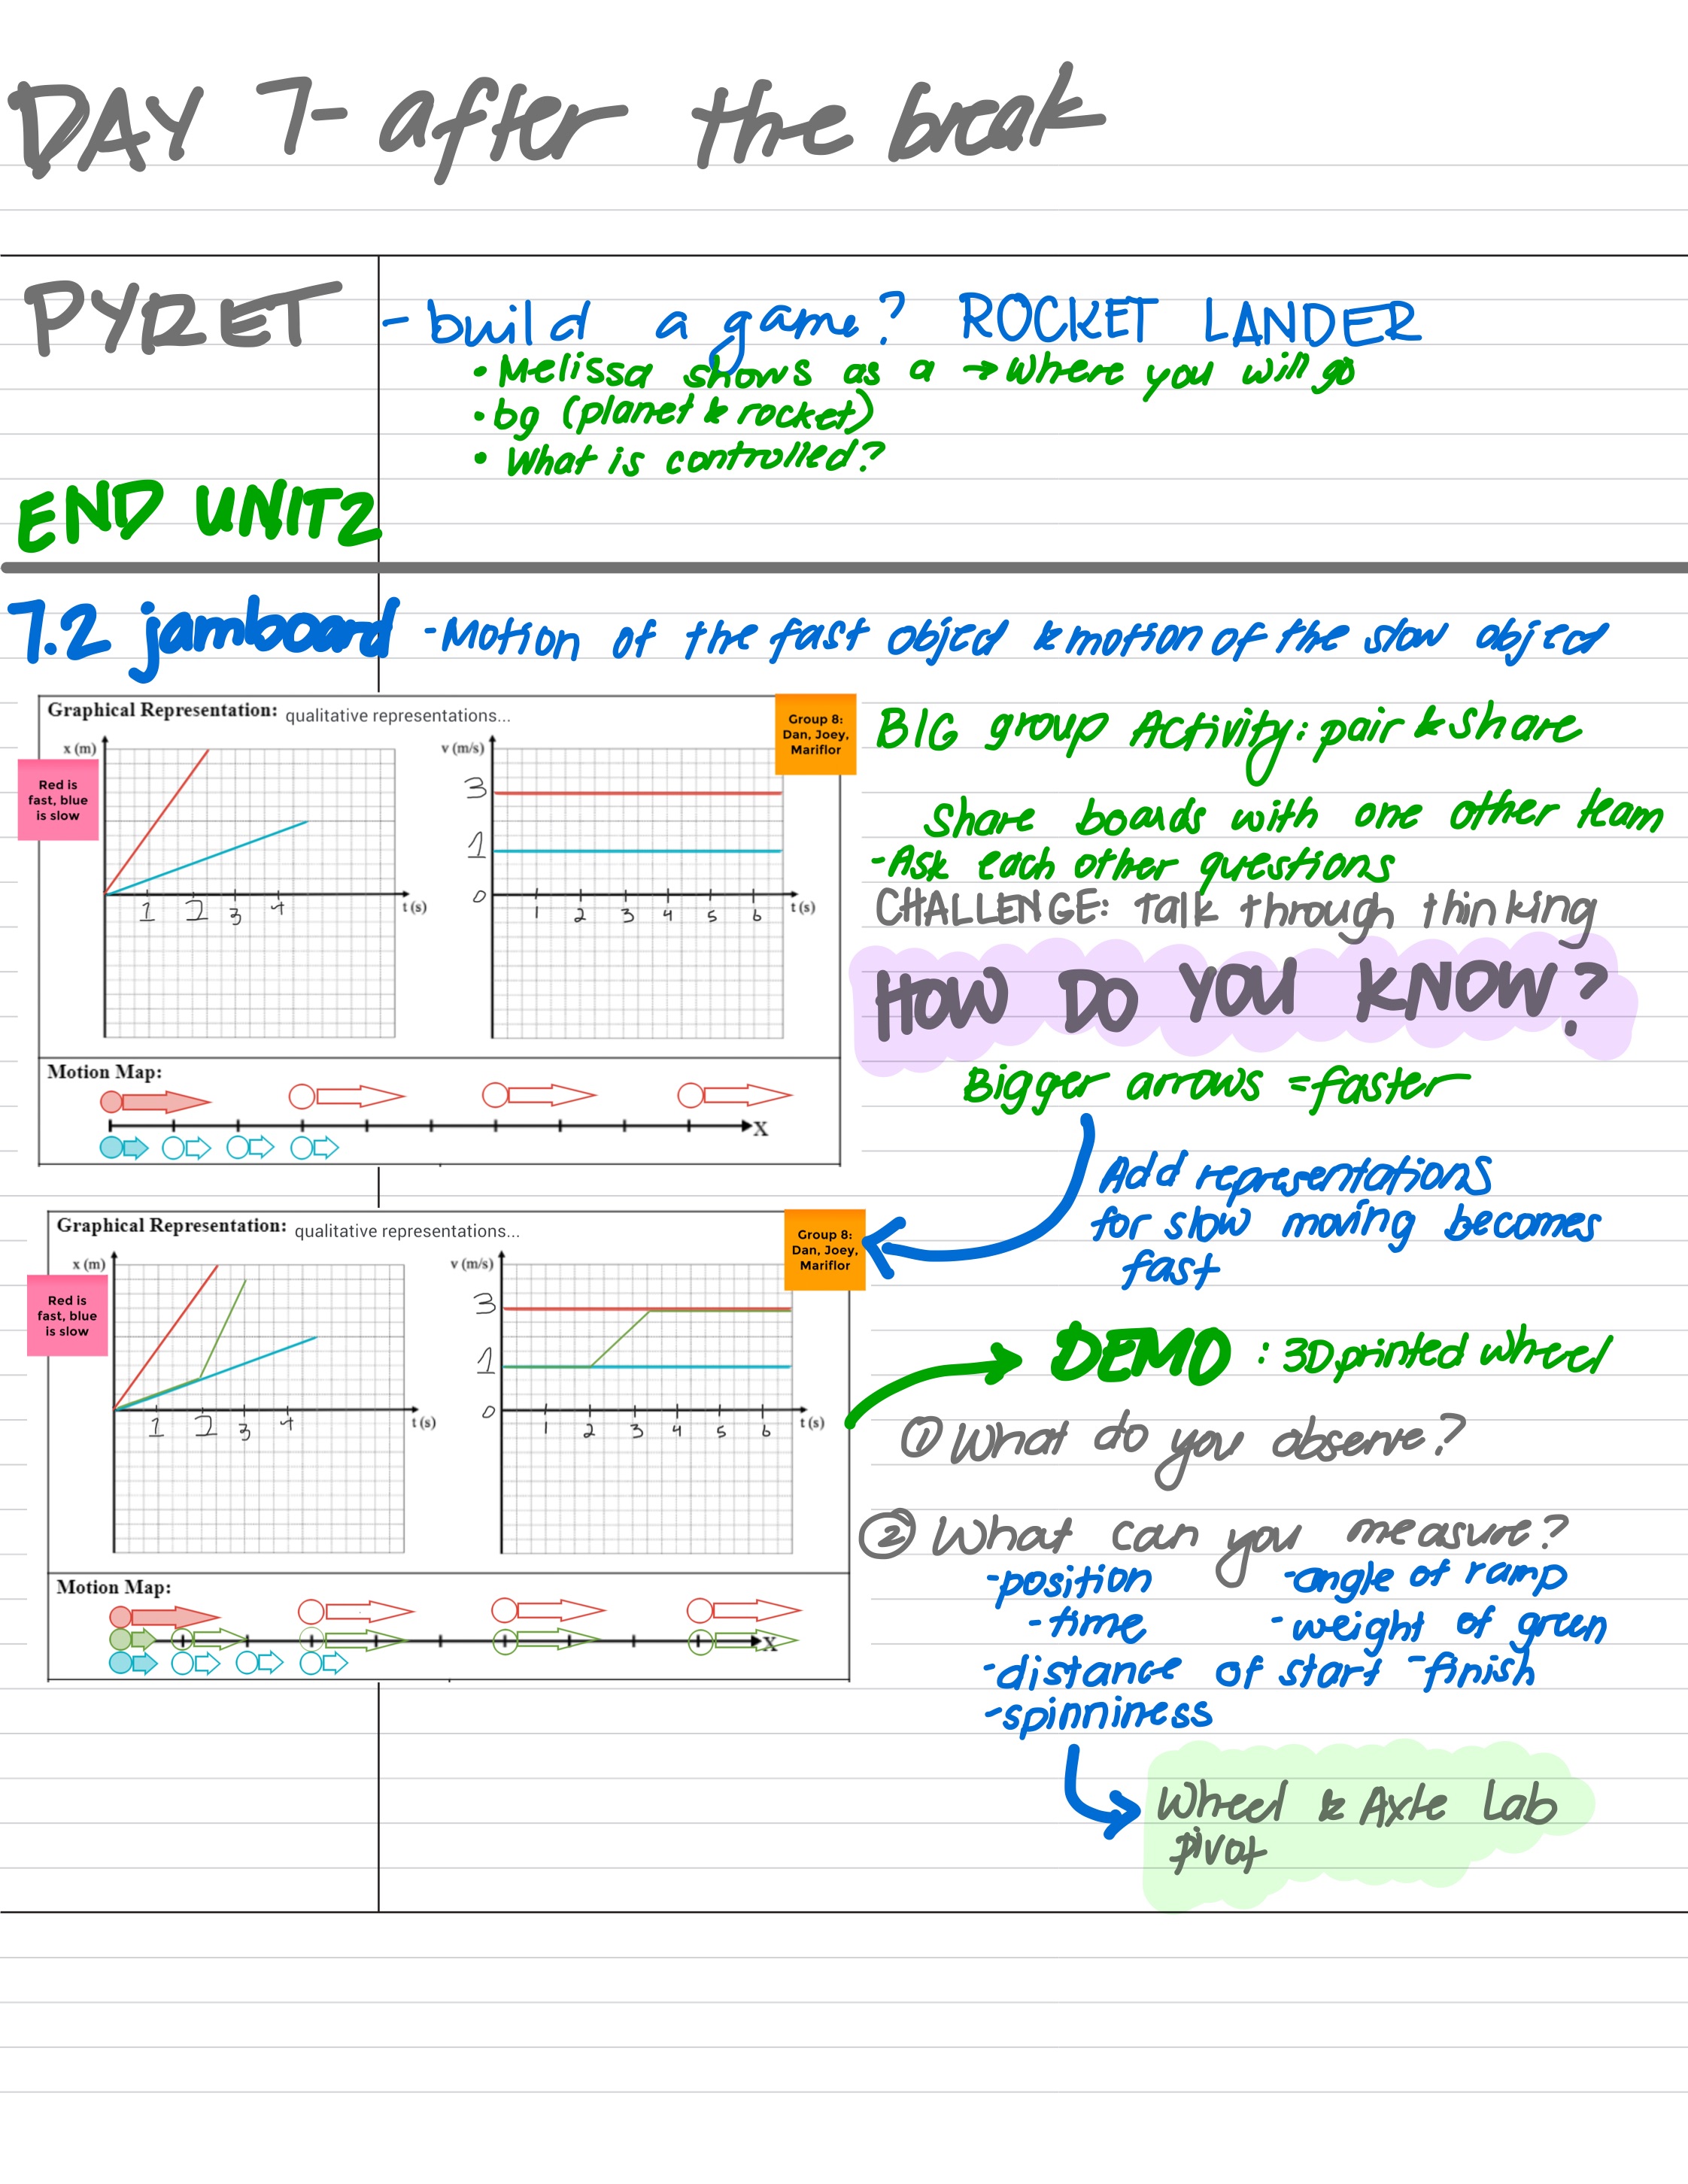 DAY 7- after the break
PYRET
- build a game? ROCKET LANDER
• Melissa shows as a → Where you will go
• bg (planet & rocket)
• What is controlled?
END UNIT 2
7.2 jamboard - Motion of the fast object & motion of the slow object
Graphical Representation: qualitative representations...
Group 8: Dan, Joey, Mariflor
Red is fast, blue is slow
x (m)
1 2 3 4 t (s)
v (m/s)
3
1
0
1 2 3 4 5 6 t (s)
Motion Map:
X
BIG group Activity: pair & share
Share boards with one other team
- Ask each other questions
CHALLENGE: Talk through thinking
HOW DO YOU KNOW?
Bigger arrows = faster
Add representations
for slow moving becomes
fast
Graphical Representation: qualitative representations...
Group 8: Dan, Joey, Mariflor
Red is fast, blue is slow
x (m)
1 2 3 4 t (s)
v (m/s)
3
1
0
1 2 3 4 5 6 t (s)
Motion Map:
X
DEMO : 3D printed wheel
① What do you observe?
② What can you measure?
- position - angle of ramp
- time - weight of green
- distance of start - finish
- spinniness
Wheel & Axle Lab
pivot